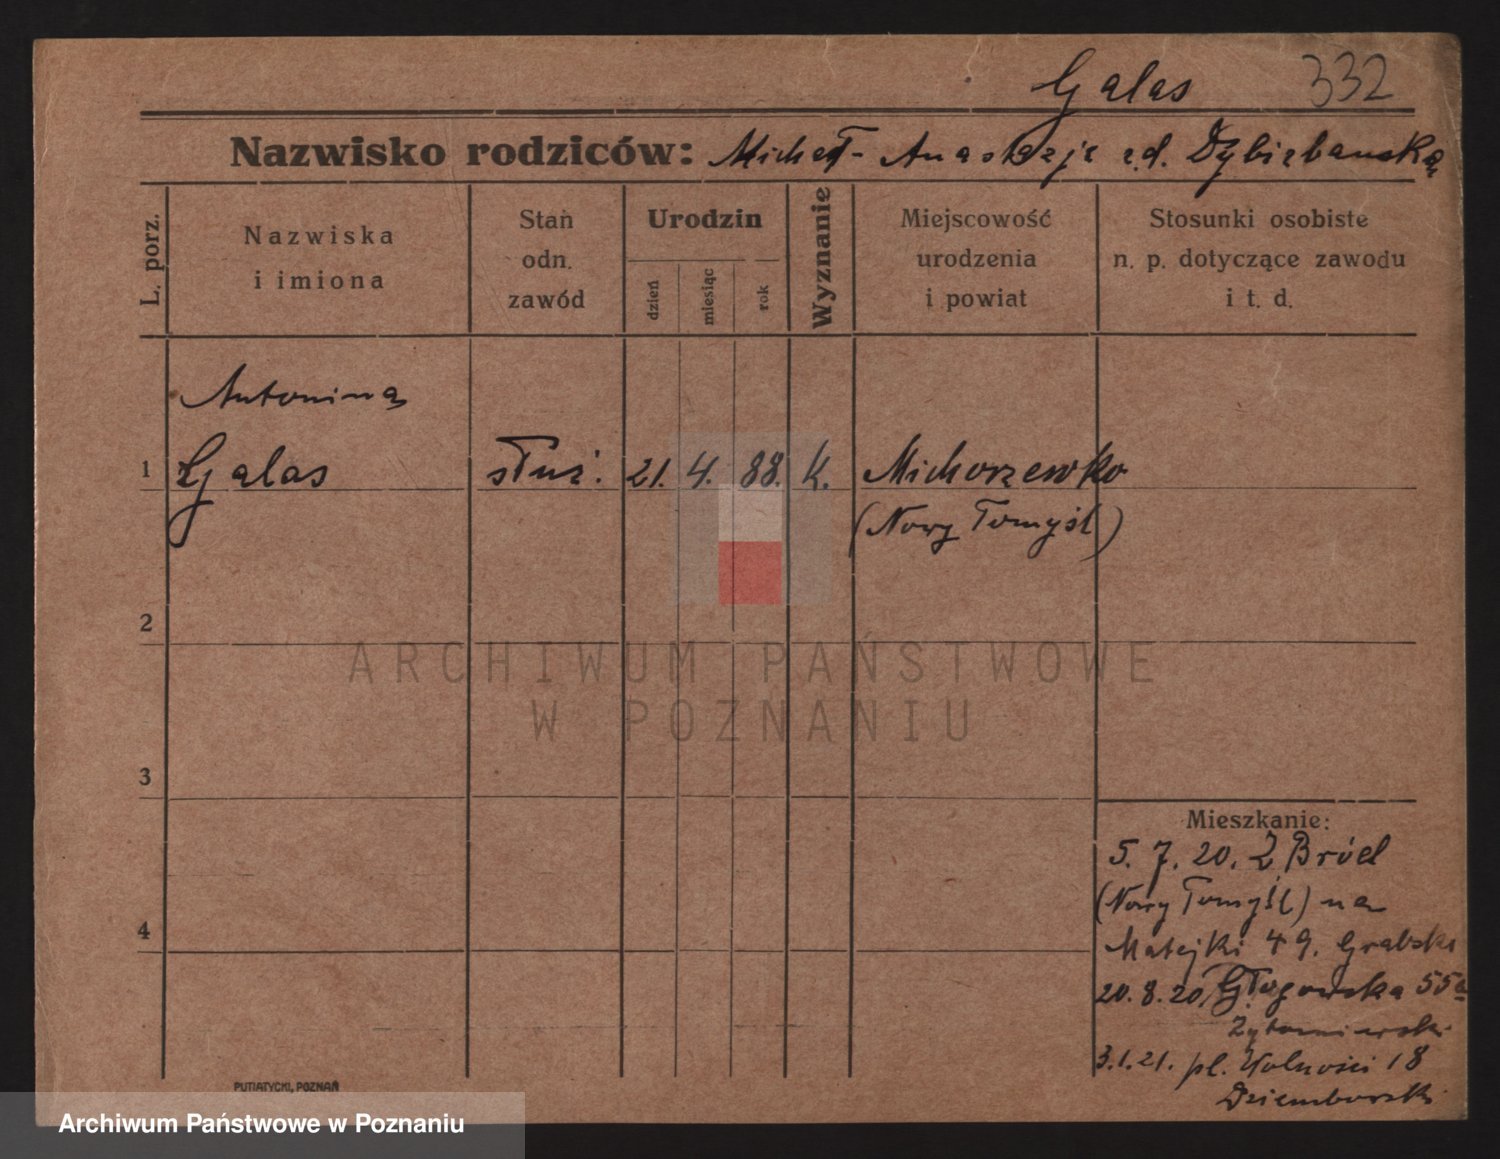 Galas 332
Nazwisko rodziców: Michał - Anastazja z d. Dybizbańska
L. porz.
Nazwiska
i imiona
Stan
odn.
zawód
Urodzin
dzień
miesiąc
rok
Wyznanie
Miejscowość
urodzenia
i powiat
Stosunki osobiste
n. p. dotyczące zawodu
i t. d.
Antonina
1 Galas służ. 21. 4. 88. K. Michorzewko
(Nowy Tomyśl)
2
ARCHIWUM PAŃSTWOWE
W POZNANIU
3
Mieszkanie:
5. 7. 20. Z Bród
(Nowy Tomyśl) na
4
Matejki 49. Grabski
20.8.20 Głogowska 55a
3.1.21. pl. Wolności 18
Dziemborski
PUTIATYCKI, POZNAŃ
Archiwum Państwowe w Poznaniu